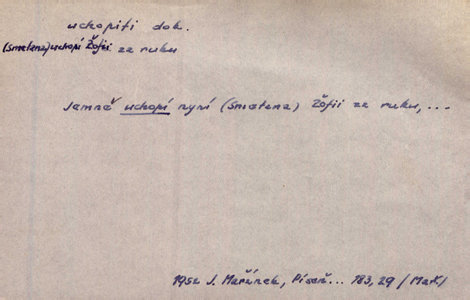 uchopiti dok.
(Smetana) uchopí Žofii za ruku
Jemně uchopí nyní (Smetana) Žofii za ruku, ...
1952 J. Mařánek, Píseň... 183,29 / Mak /